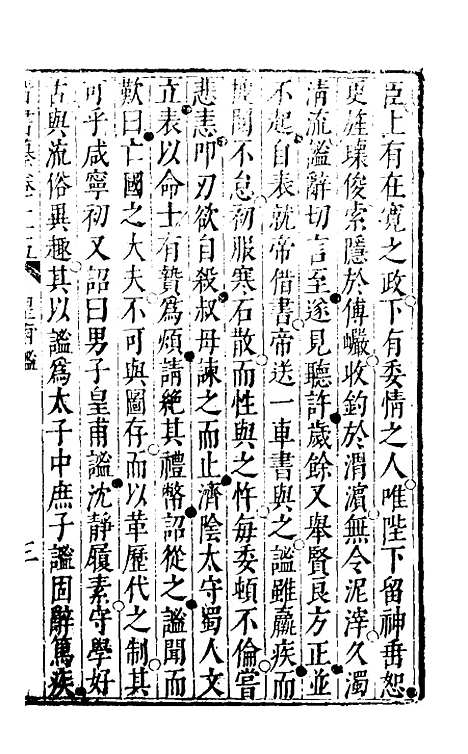 臣上有在寬之政下有委情之人唯陛下留神垂恕
更旌瓌俊索隱於傅巖收釣於渭濵無令泥滓久濁
淸流謐辭切言至遂見聽許歲餘又舉賢良方正並
不起自表就帝借書帝送一車書與之謐雖羸疾而
披閱不怠初服寒石散而性與之忤每委頓不倫嘗
悲恚叩刃欲自殺叔母諫之而止濟陰太守蜀人文
立表以命士有贄爲煩請絕其禮幣詔從之謐聞而
歎曰亡國之大夫不可與圖存而以革歷代之制其
可乎咸寧初又詔曰男子皇甫謐沈靜履素守學好
古與流俗異趣其以謐爲太子中庶子謐固辭篤疾
卷二十五 皇甫謐 三